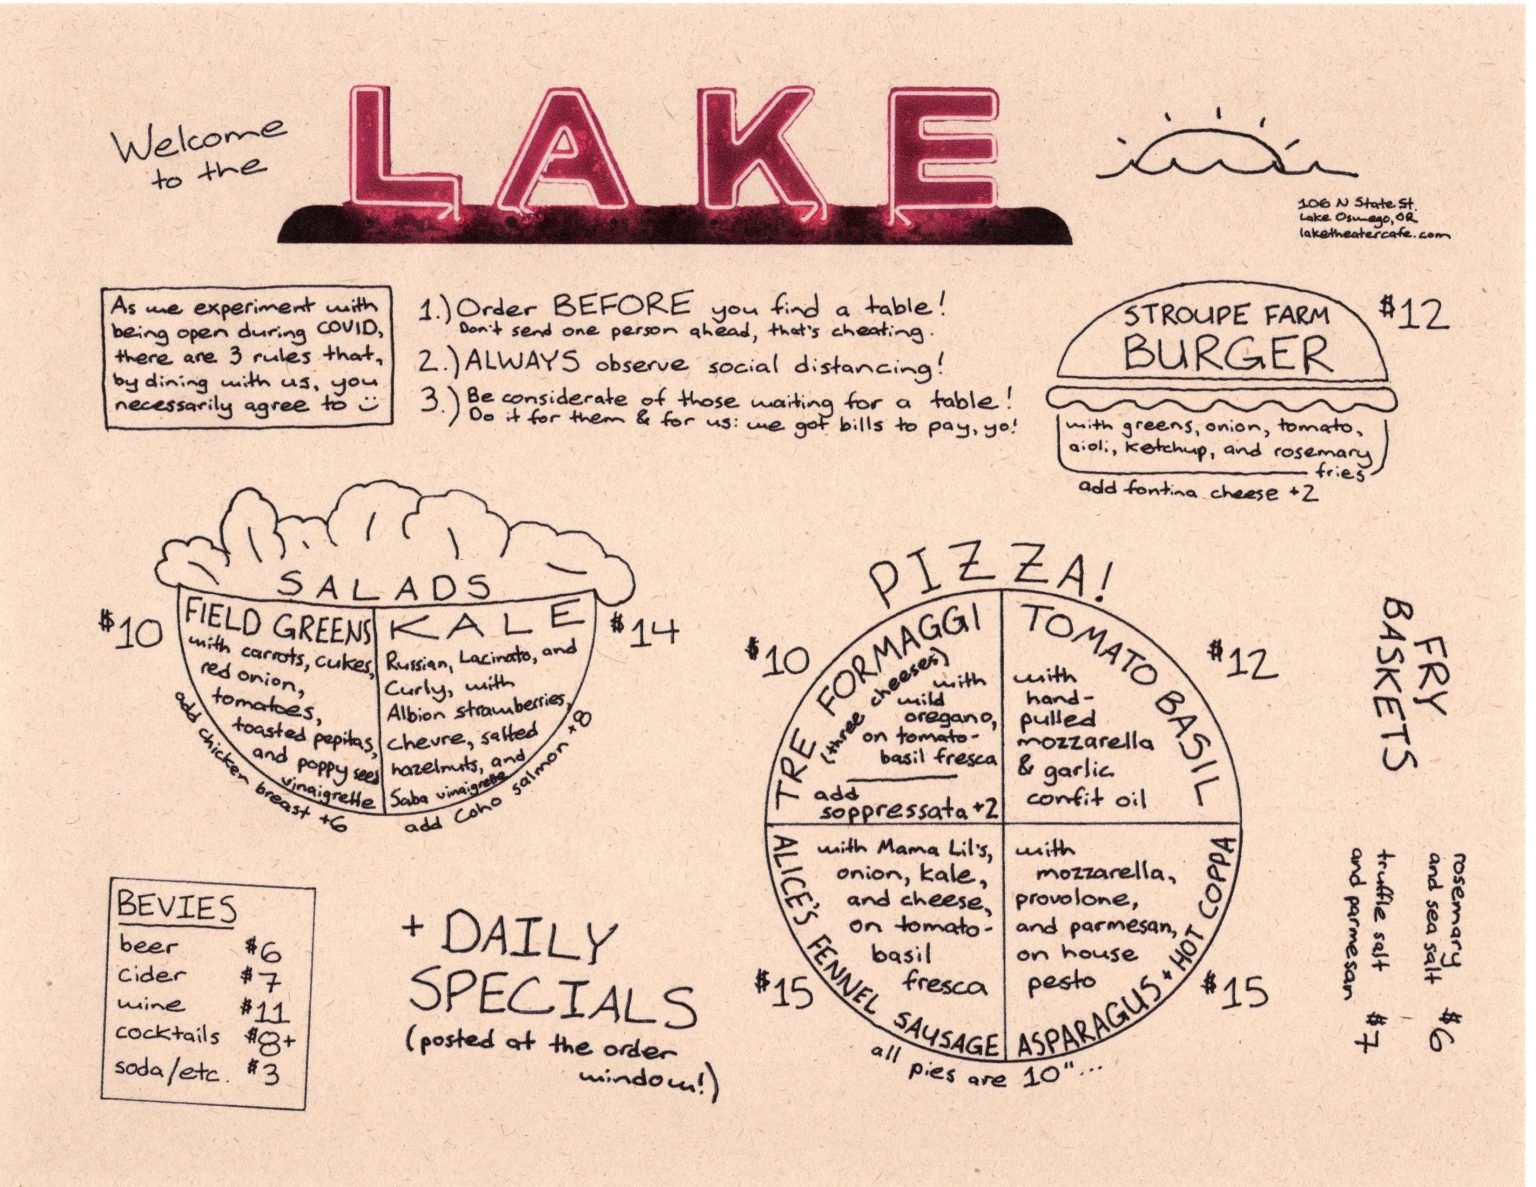 Welcome
to the
LAKE
106 N State St.
Lake Oswego, OR
laketheatercafe.com
As we experiment with
being open during COVID,
there are 3 rules that,
by dining with us, you
necessarily agree to
1.) Order BEFORE you find a table!
Don't send one person ahead, that's cheating.
2.) ALWAYS observe social distancing!
3.) Be considerate of those waiting for a table!
Do it for them & for us: we got bills to pay, yo!
STROUPE FARM
BURGER
$12
with greens, onion, tomato,
aioli, ketchup, and rosemary
fries
add fontina cheese +2
SALADS
$10
FIELD GREENS
with carrots, cukes,
red onion,
tomatoes,
toasted pepitas,
and poppy seed
vinaigrette
add chicken breast +6
KALE
$14
Russian, Lacinato, and
Curly, with
Albion strawberries,
chevre, salted
hazelnuts, and
Saba vinaigrette
add Coho salmon +8
PIZZA!
$10
TRE FORMAGGI
(three cheeses)
with
mild
oregano,
on tomato-
basil fresca
add
soppressata +2
TOMATO BASIL
$12
with
hand-
pulled
mozzarella
& garlic
confit oil
ALICE'S FENNEL SAUSAGE
$15
with Mama Lil's,
onion, kale,
and cheese,
on tomato-
basil
fresca
ASPARAGUS + HOT COPPA
$15
with
mozzarella,
provolone,
and parmesan,
on house
pesto
all pies are 10"...
FRY
BASKETS
rosemary
and sea salt $6
truffle salt
and parmesan $7
BEVIES
beer $6
cider $7
wine $11
cocktails $8+
soda/etc. $3
+ DAILY
SPECIALS
(posted at the order
window!)